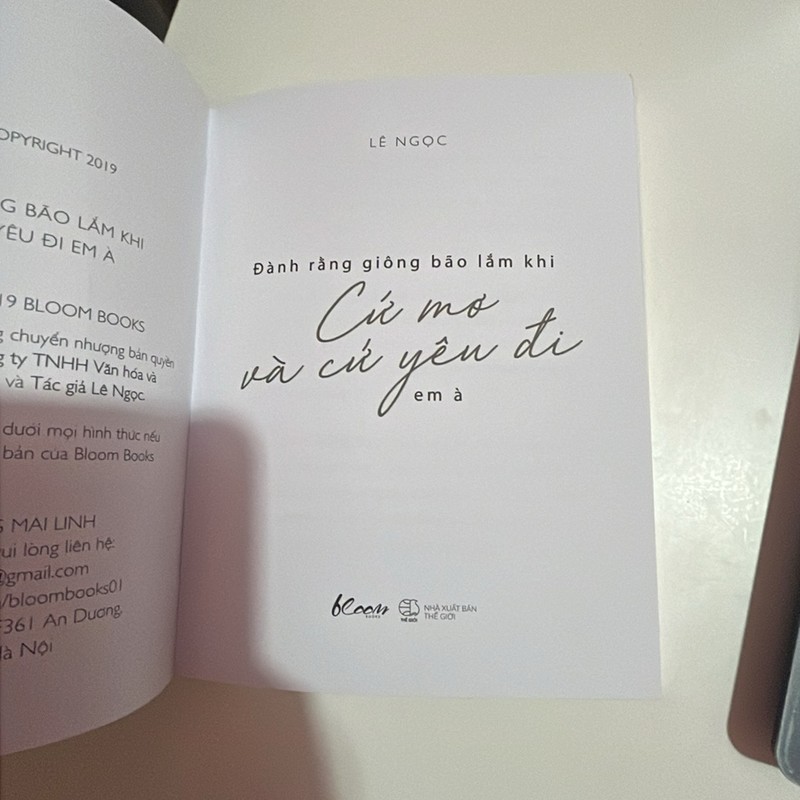 OPYRIGHT 2019
G BÃO LẮM KHI
YÊU ĐI EM À
19 BLOOM BOOKS
g chuyển nhượng bản quyền
g ty TNHH Văn hóa và
và Tác giả Lê Ngọc
dưới mọi hình thức nếu
bản của Bloom Books
MAI LINH
ui lòng liên hệ:
@gmail.com
/bloombooks01
F361 An Dương,
Hà Nội
LÊ NGỌC
Đành rằng giông bão lắm khi
Cứ mơ
và cứ yêu đi
em à
bloom
BOOKS
THẾ GIỚI
NHÀ XUẤT BẢN
THẾ GIỚI